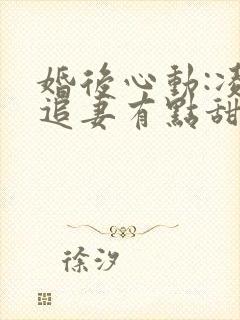 婚後心動:
追妻有點甜
徐汐